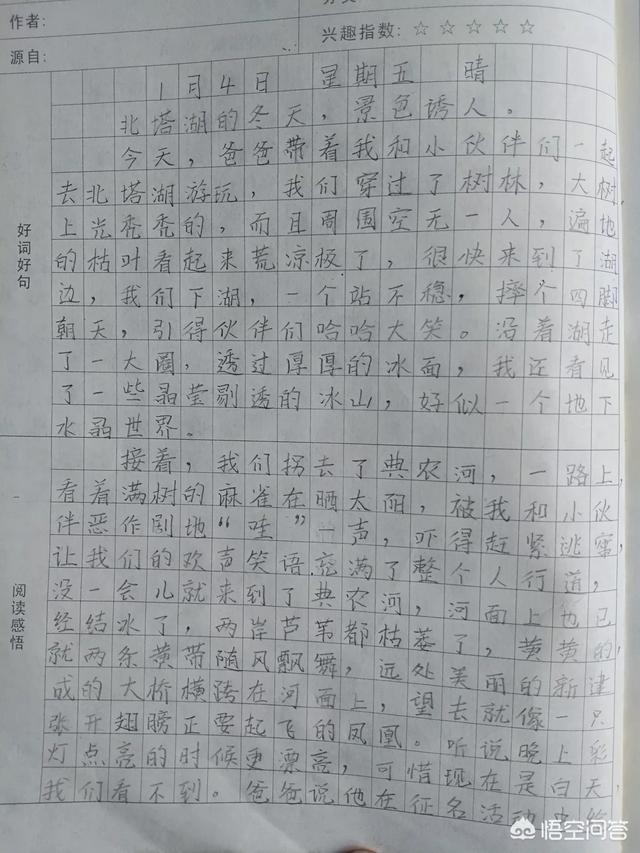 作者：
兴趣指数：☆ ☆ ☆ ☆ ☆
源自：
1月4日 星期五 晴
北塔湖的冬天，景色诱人。
今天，爸爸带着我和小伙伴们一起
去北塔湖游玩，我们穿过了树林，大树
上光秃秃的，而且周围空无一人，遍地
的枯叶看起来荒凉极了，很快来到了湖
边，我们下湖，一个站不稳，摔个四脚
朝天，引得伙伴们哈哈大笑。沿着湖走
了一大圈，透过厚厚的冰面，我还看见
了一些晶莹剔透的冰山，好似一个地下
水晶世界。
接着，我们拐去了典农河，一路上，
看着满树的麻雀在晒太阳，被我和小伙
伴恶作剧地“哇”一声，吓得赶紧逃窜，
让我们的欢声笑语充满了整个人行道，
没一会儿就来到了典农河，河面上也已
经结冰了，两岸芦苇都枯萎了，黄黄的，
就两条黄带随风飘舞，远处美丽的新建
成的大桥横跨在河面上，望去就像一只
张开翅膀正要起飞的凤凰。听说晚上彩
灯点亮的时候更漂亮，可惜现在是白天，
我们看不到。爸爸说他在征名活动中给
好词好句
阅读感悟
悟空问答